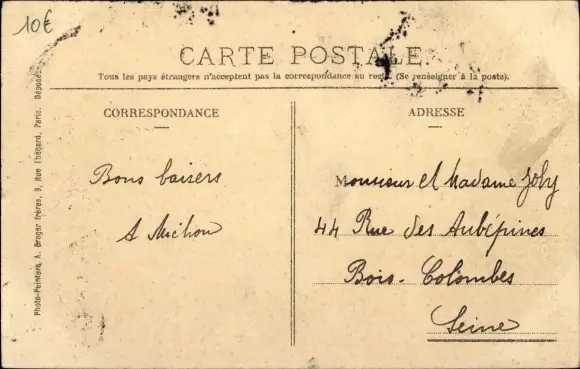 10€
CARTE POSTALE
Tous les pays étrangers n'acceptent pas la correspondance au recto (Se renseigner à la poste).
CORRESPONDANCE
ADRESSE
Bons baisers
A Michon
Monsieur et Madame Joly
44 Rue des Aubépines
Bois-Colombes
Seine
Photo-Peinture, A. Breger frères, 9, Rue Thénard, Paris. Déposé.